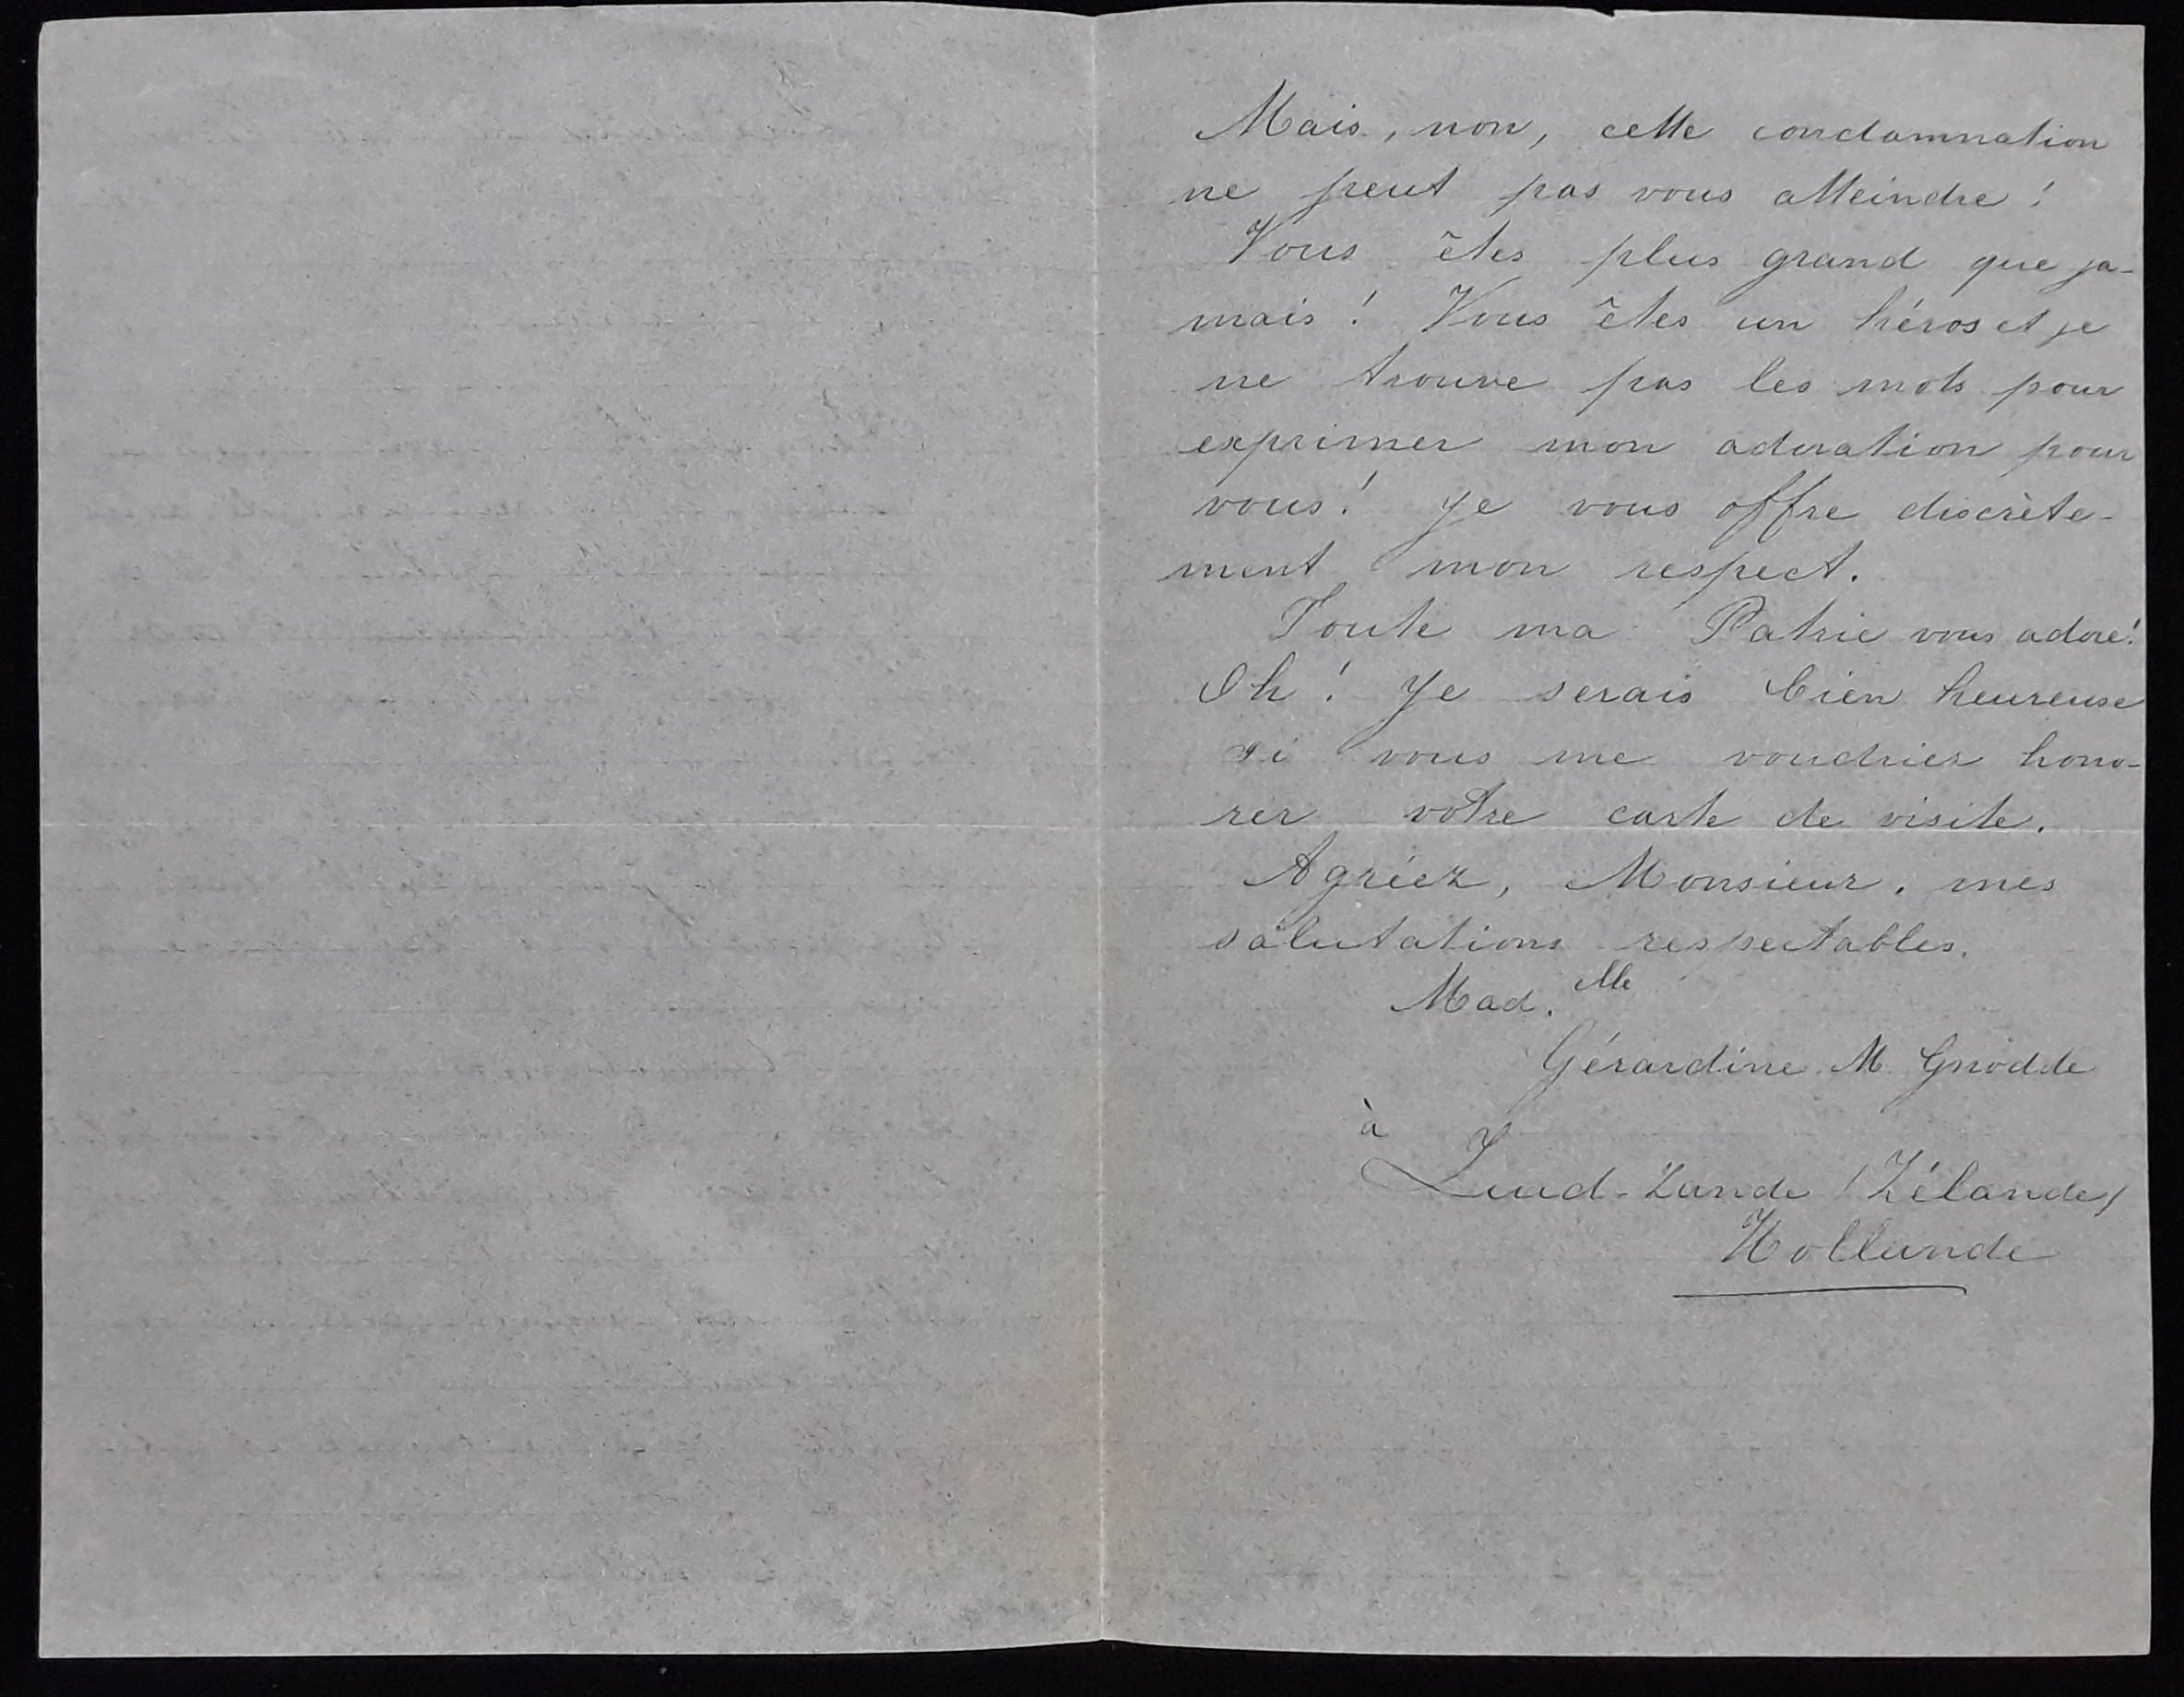 Mais, non, cette condamnation
ne peut pas vous atteindre!
Vous êtes plus grand que ja-
mais! Vous êtes un héros et je
ne trouve pas les mots pour
exprimer mon adoration pour
vous! Je vous offre discrète-
ment mon respect.
Toute ma Patrie vous adore!
Oh! Je serais bien heureuse
si vous me voudriez hono-
rer votre carte de visite.
Agréez, Monsieur, mes
salutations respectables.
Mad.elle
Gérardine M. Gnodde
à
Zuid-Zande (Zélande)
Hollande